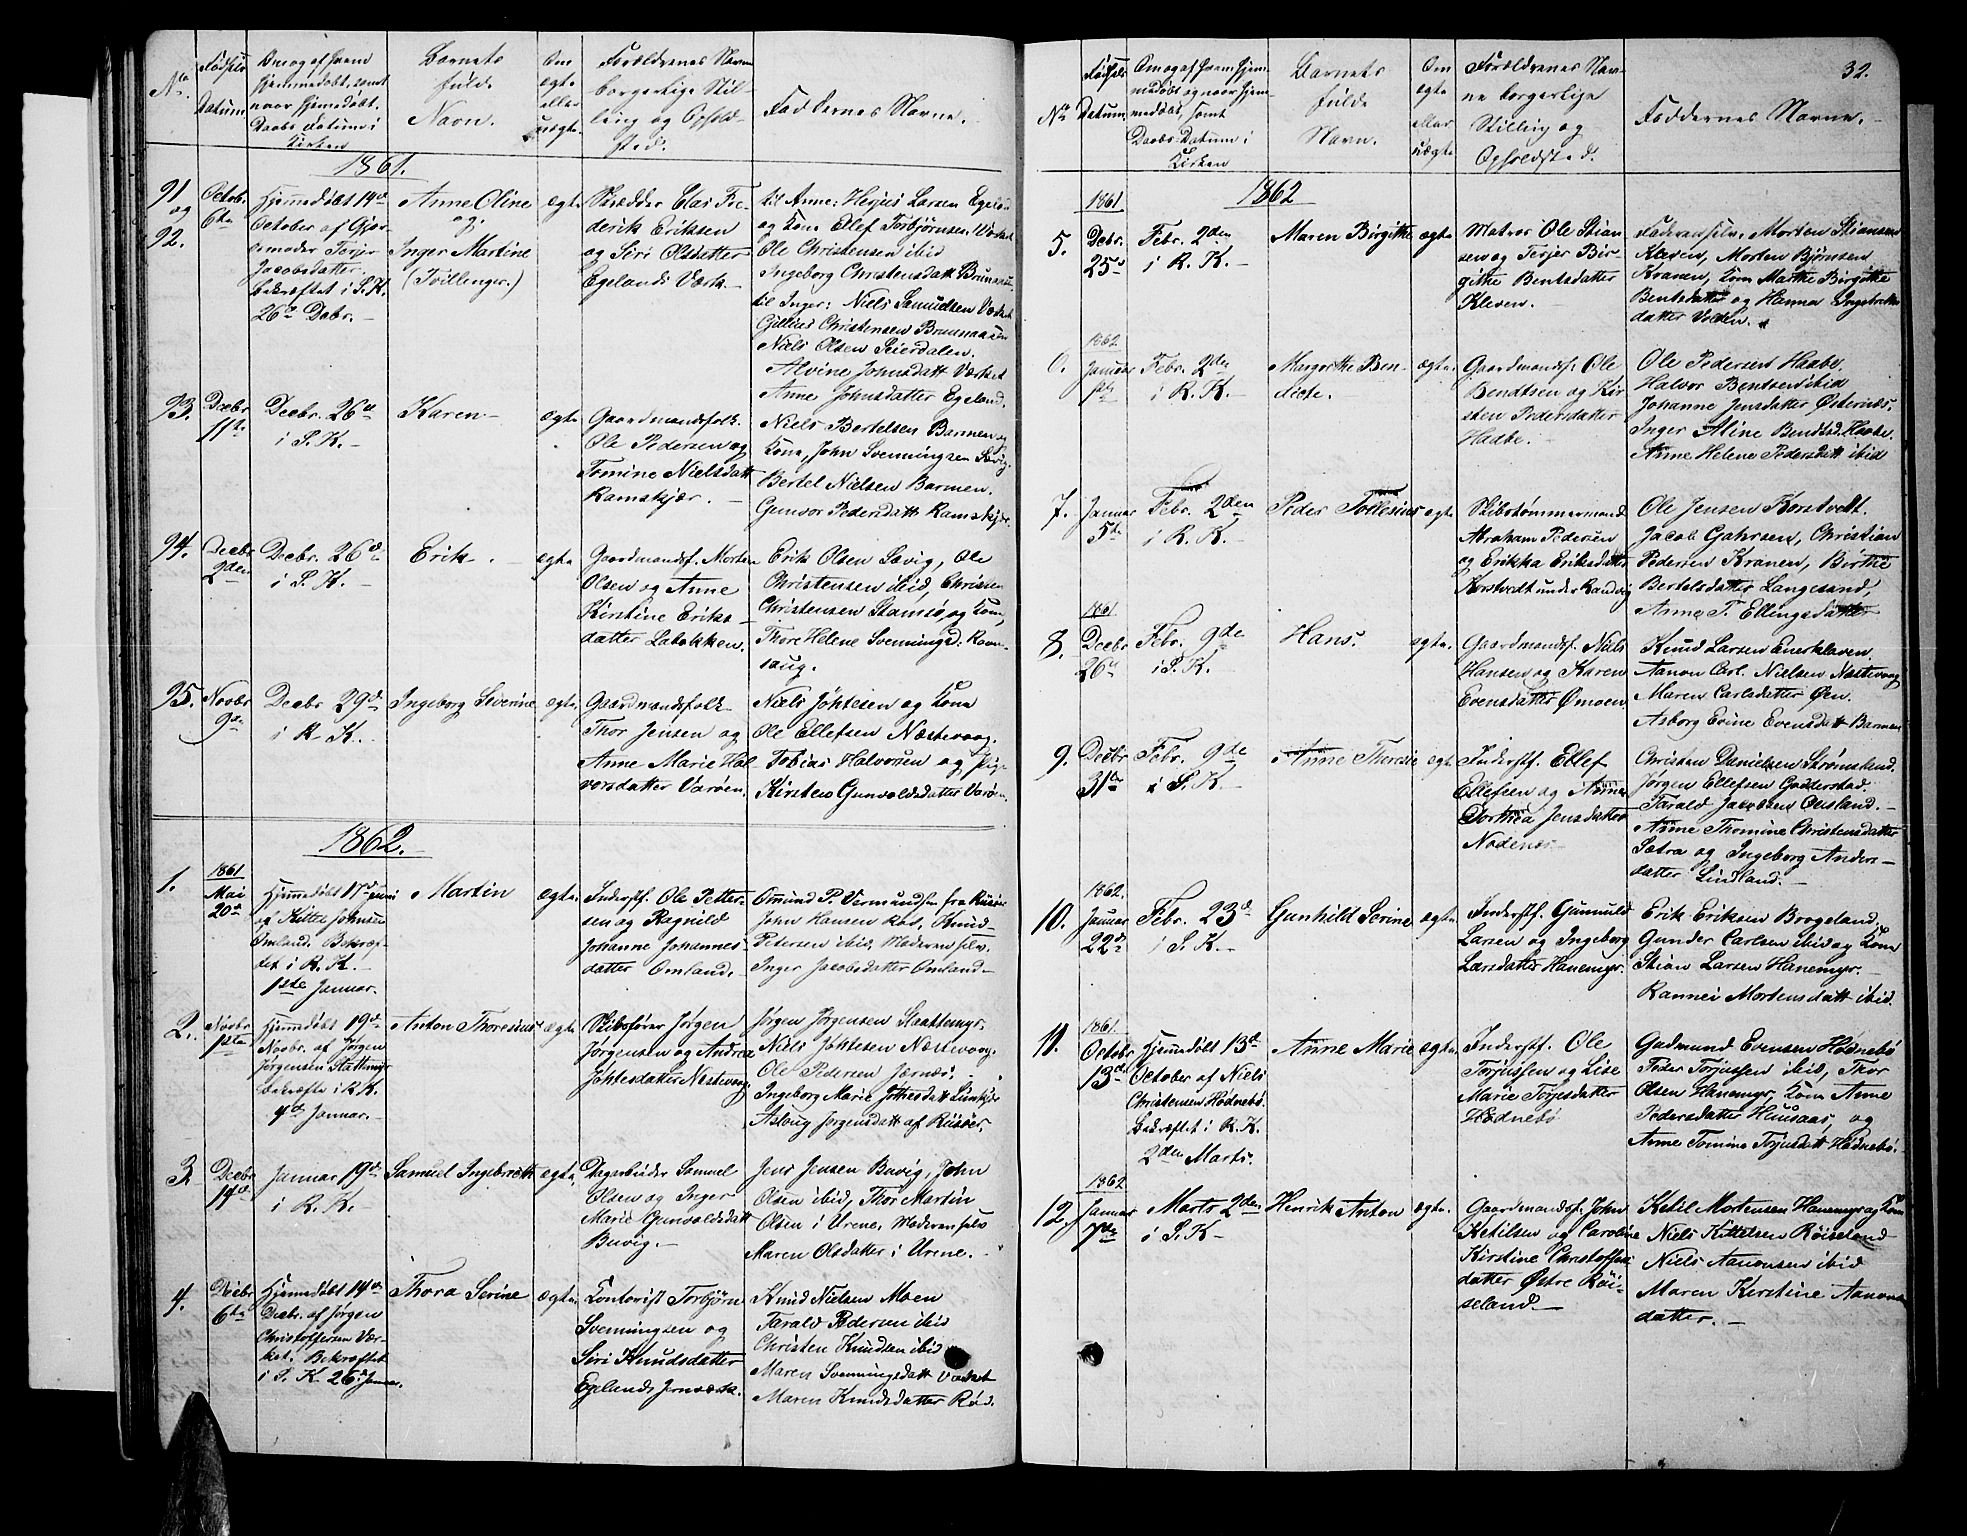 No.
Fødsels
Datum
Om og af hvem
hjemmedøbt, samt
naar hjemedøbt.
Daabs Datum i
Kirken
Barnets
fulde
Navn.
Om
ægte
eller
uægte
Forældrenes Navn
borgerlige Stil-
ling og Ophold-
sted.
Faddernes Navne.
1861.
91
og
92.
Octob.
6te
Hjemmedøbt 14de
October af Gjor-
demoder Terje
Jacobsdatter.
bekræftet i S. K.
26de Debr.
Anne Oline
og
Inger Martine
(Tvillinger.)
ægte
Skrædder Clas Fre-
derik Eriksen
og Siri Olsdatter
Egelands Værk.
til Anne: Herjus Larsen Egeland
og Kone Ellef Torbjørnsen, Værket
Ole Christensen ibid
Ingeborg Christensdatt
til Inger: Niels Samuelsen Værket
Christensen
Niels Olsen Peierdalen.
Alvine Johnsdatt Værket
Anne Johnsdatter Egeland.
93.
Decbr
11te
Decbr. 26de
i S. K.
Karen
ægte
Gaardmandsfolk.
Ole Pedersen og
Tomine Nielsdatt
Ramskjær.
Niels Bertelsen Barmen og
Kone, John Svenningsen Sævig.
Bertel Nielsen Barmen.
Gunvor Pedersdatt Ramskjær.
94.
Decbr
2den
Decbr. 26de
i S. K.
Erik.
ægte
Gaardmandsf. Morten
Olsen og Anne
Kirstine Eriks-
datter Labakken.
Erik Olsen Sævig, Ole
Christensen ibid, Christen
Christensen Stamsø, og Kone,
Thore Helene Svenningsd. Ravn-
saug.
95.
Novbr
9de
Decbr 29de
i R. K.
Ingeborg Severine
ægte
Gaardmandsfolk
Thor Jensen og
Anne Marie Hal-
vorsdatter Varøen.
Niels Johtesen og Kone
Ole Ellefsen Næstevaag.
Tobias Halvorsen og Pige
Kirsten Gunvoldsdatter Varøen.
1862.
1.
1861
Mai
20de
Hjemmedøbt 17de Juni
af Kittil Johnsen
Omland. Bekræf-
tet i R. K.
1ste Januar.
Martin
ægte
Inderstf. Ole Petter-
sen og Ragnild
Johanne Johannes-
datter Omland.
Omund P. Vermundsen fra Riisør
John Hansen Røs, Knud
Petersen ibid, Moderen selv
Inger Jacobsdatter Omland
2.
Novbr.
1ste
Hjemmedøbt 19de
Novbr. af Jørgen
Jørgensen Slattemyr
bekræfte i R. K.
4de Januar.
Anton Thoresius
ægte
Skibsfører Jørgen
Jørgensen og Andrea
Johtesdatter Næstevaag
Jørgen Jørgensen Slaattemyr.
Niels Johtesen Næstevaag.
Ole Pedersen Jernæs.
Ingeborg Marie Johtesdatt
Aslaug Jørgensdatt af Riisøer.
3.
Decbr
14de
Januar 19de
i R. K.
Samuel Ingebrett
ægte.
Dagarbeider Samuel
Olsen og Inger
Marie Gunvoldsdatt
Buvig.
Jens Jensen Buvig, John
Olsen ibid, Thor Martin
Olsen i Urene, Moderen selv
Maren Olsdatter i Urene.
4.
Decbr
6te
Hjemmedøbt 14de
Decbr. af Jørgen
Christoffersen Vær-
ket. Bekræftet
i S. K. 26de Januar.
Thora Serine
ægte
Kontorist Torbjørn
Svenningsen og
Siri Knudsdatter
Egelands Jernværk.
Knud Nielsen Moen
Tarald Pedersen ibid
Christen Knudsen ibid
Maren Svenningsdatt Værket
Maren Knudsdatter Rød.
32.
No
Fødsels
Datum
Om og af hvem hjem-
medøbt og naar hjem-
medøbt, samt
Daabs Datum i
Kirken
Barnets
fulde
Navn.
Om
ægte
eller
uægte
Forældrenes Nav-
ne borgerlige
Stilling og
Opholdsted.
Faddernes Navne.
1862
5.
1861
Debr.
25de
Febr. 2den
i R. K.
Maren Birgitte
ægte
Matros Ole Stian-
sen og Terjer Bir-
gitte Bentsdatter
Kleven.
Faderen selv, Morten Stiansen
Kleven, Morten Bjørnsen
Kranen, Kone Marthe Birgitte
Bentsdatter og Hanna Ingebretts-
datter Volden.
6.
1862
Januar
1ste
Febr. 2den
i R. K.
Margrethe Ben-
dicte.
ægte.
Gaardmandsf. Ole
Bendtsen og Kir-
sten Pedersdatter
Haabe.
Ole Pedersen Haabe.
Halvor Bentsen ibid
Johanne Jensdatter Østernæs.
Inger Aline Bendtsd. Haabe.
Anne Helene Pedersdatt ibid
7.
Januar
5te
Febr. 2den
i R. K.
Peder Tollesius
ægte
Skibstømmermand
Abraham Pedersen
og Erikka Eriksdatter
Korstvedt under Randvig
Ole Jensen Korstvedt.
Jacob Gahrsen, Christian
Pedersen Kranen, Birthe
Bertelsdatter Langesand,
Anne T. Ellingsdatter
8.
1861
Decbr
26de
Febr. 9de
i S. K.
Hans.
ægte.
Gaardmandsf. Niels
Hansen og Karen
Evensdatter Ømoen
Knud Larsen Enerkleven
Aanon Carl Nielsen Næstevaag
Maren Carlsdatter Øen.
Asborg Evine Evensdatt Barmen
9.
Decbr
31te
Febr. 9de
i S. K.
Anne Therese
ægte
Inderstf. Ellef
Ellefsen og Anne
Dorthea Jensdatter
Nodenæs
Christen Danielsen Strømsland.
Jørgen Ellefsen Gødderstad.
Tarald Jacobsen Ousland.
Anne Thomine Christensdatter
Sætra og Ingeborg Anders-
datter Lindland.
10.
1862.
Januar
22de
Febr. 23de
i S. K.
Gunhild Serine
ægte
Inderstf. Gunnuld
Larsen og Ingeborg
Larsdatter Hanemyr.
Erik Eriksen Brogeland
Gunder Carlsen ibid og Kone
Stian Larsen Hanemyr.
Rannei Mortensdatt ibid.
11.
1861.
Octobr
13de
Hjemmedøbt 13de
October af Niels
Christensen Hødnebø.
Bekræftet i R. K.
2den Marts.
Anne Marie
ægte
Inderstf. Ole
Torjussen og Lise
Marie Torjesdatter
Hødnebø
Gudmund Evensen Hødnebø
Peder Torjussen ibid, Thor
Olsen Hanemyr, Kone Anne
Pedersdatter Huusaas, og
Anne Tomine Torjusdatt Hødnebø.
12.
1862
Januar
7de
Marts 2den
i S. K.
Henrik Anton
ægte.
Gaardmandsf. John
Ketilsen og Caroline
Kirstine Christoffers-
datter Østre Røi-
seland
Ketil Mortensen Hanemyr og Kone
Niels Kittelsen Røiseland
Niels Aanonsen ibid
Maren Kirstine Aanons-
datter.